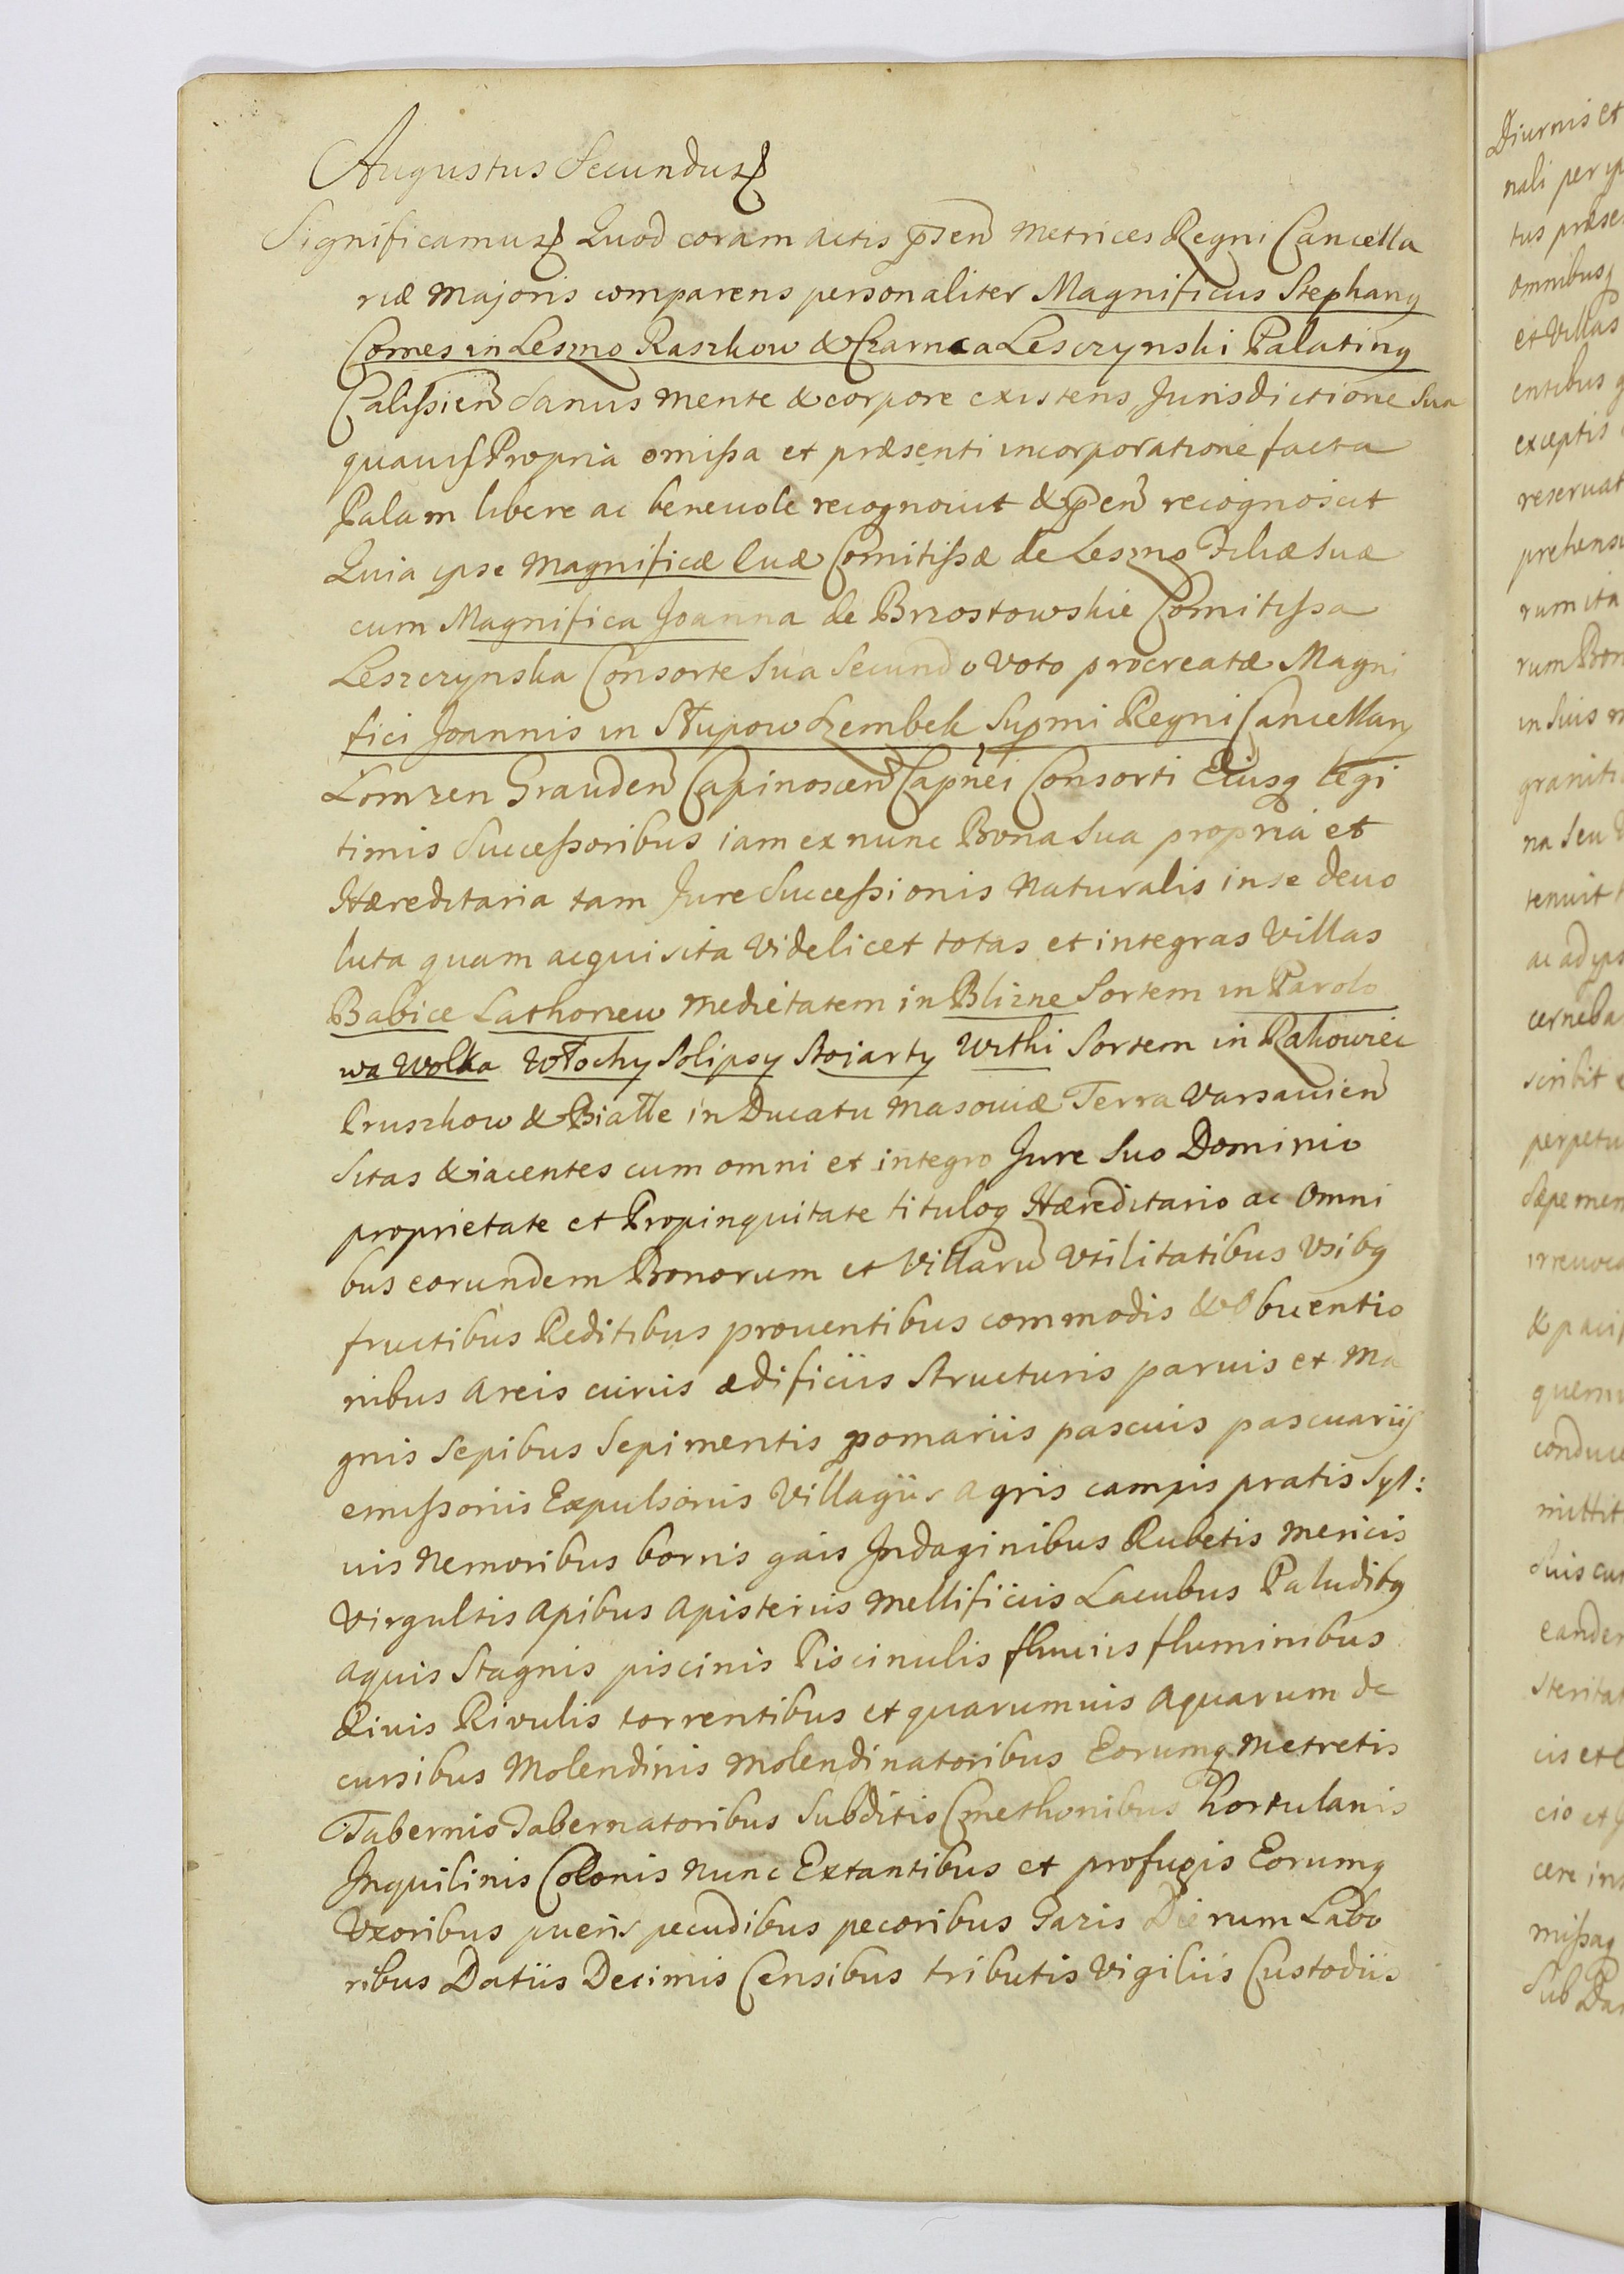 Augustus Secundus
Significamus Quod coram actis pñsen Metrices Regni Cancella
riæ Majoris comparens personaliter Magnificus Stephanꝯ
Comes in Leszno Raszkow & Czarnca Lesczynski Palatinꝯ
Calissien Sanus mente & corpore existens Jurisdictione Sua
quavis Propria omissa et præsenti incorporatione facta
Palam libere ac benevole recognovit & pñsen recognoscit
Quia ipse Magnificæ Evæ Comitissæ de Leszno Filiæ Suæ
cum Magnifica Joanna de Brzostowskie Comitissa
Leszczynska Consorte Sua Secundo Voto procreatæ Magni
fici Joannis in Słupow Szembek Supmi Regni Cancellarÿ
Lomzen Grauden Capinoscen Capnei Consorti Eiusq legi
timis Successoribus iam ex nunc Bona Sua propria et
Hæreditaria tam Jure Successionis Naturalis in se devo
luta quam acquisita Videlicet totas et integras Villas
Babice Lathorzew Medietatem in Blizne Sortem in Parolo
wa Wolka Włochy Solipsy Stojarty Wikhi Sortem in Rakowiec
Pruszkow & Białłe in Ducatu Masoviæ Terra Varsavien
Sitas & iacentes cum omni et integro Jure Suo Dominio
proprietate et Propinquitate tituloq Hæreditario ac Omni
bus eorundem Bonorum et Villaru Vtilitatibus Vsibꝯ
fructibus Reditibus proventibus commodis & Obuentio
nibus Areis curiis ædificiis Structuris parvis et Ma
gnis Sepibus Sepimentis pomariis pascuis pascuariis
emissoriis Expulsoriis Villagiis Agris campis pratis Syl:
vis Nemoribus borris gais Indaginibus Rubetis Mericis
Virgultis Apibus Apisteriis Mellificiis Lacubus Paludibꝯ
Aquis Stagnis piscinis Piscinulis fluviis fluminibus
Rivis Rivulis torrentibus et quarumvis Aquarum de
cursibus Molendinis Molendinatoribus Eorumq Metretis
Tabernis Tabernatoribus Subditis Cmethonibus Hortulanis
Inquilinis Colonis Nunc Extantibus et profugis Eorumq
Vxoribus pueris pecudibus pecoribus Gazis Dierum Labo
ribus Datiis Decimis Censibus tributis Vigiliis Custodiis
Diurnis et
nali per
tus præse
omnibusq
et Villas
entibus
exceptis
reservat
prehens
rum ita
rum Bon
in Suis
graniti
na Seu
tenuit
ac ad ips
cerneba
scribit
perpetu
Sæpe men
irrevoca
& paci
quem
conduc
mittit
Suis cu
eander
Sterita
iis et
cio et
cere in
missaq
Sub Da